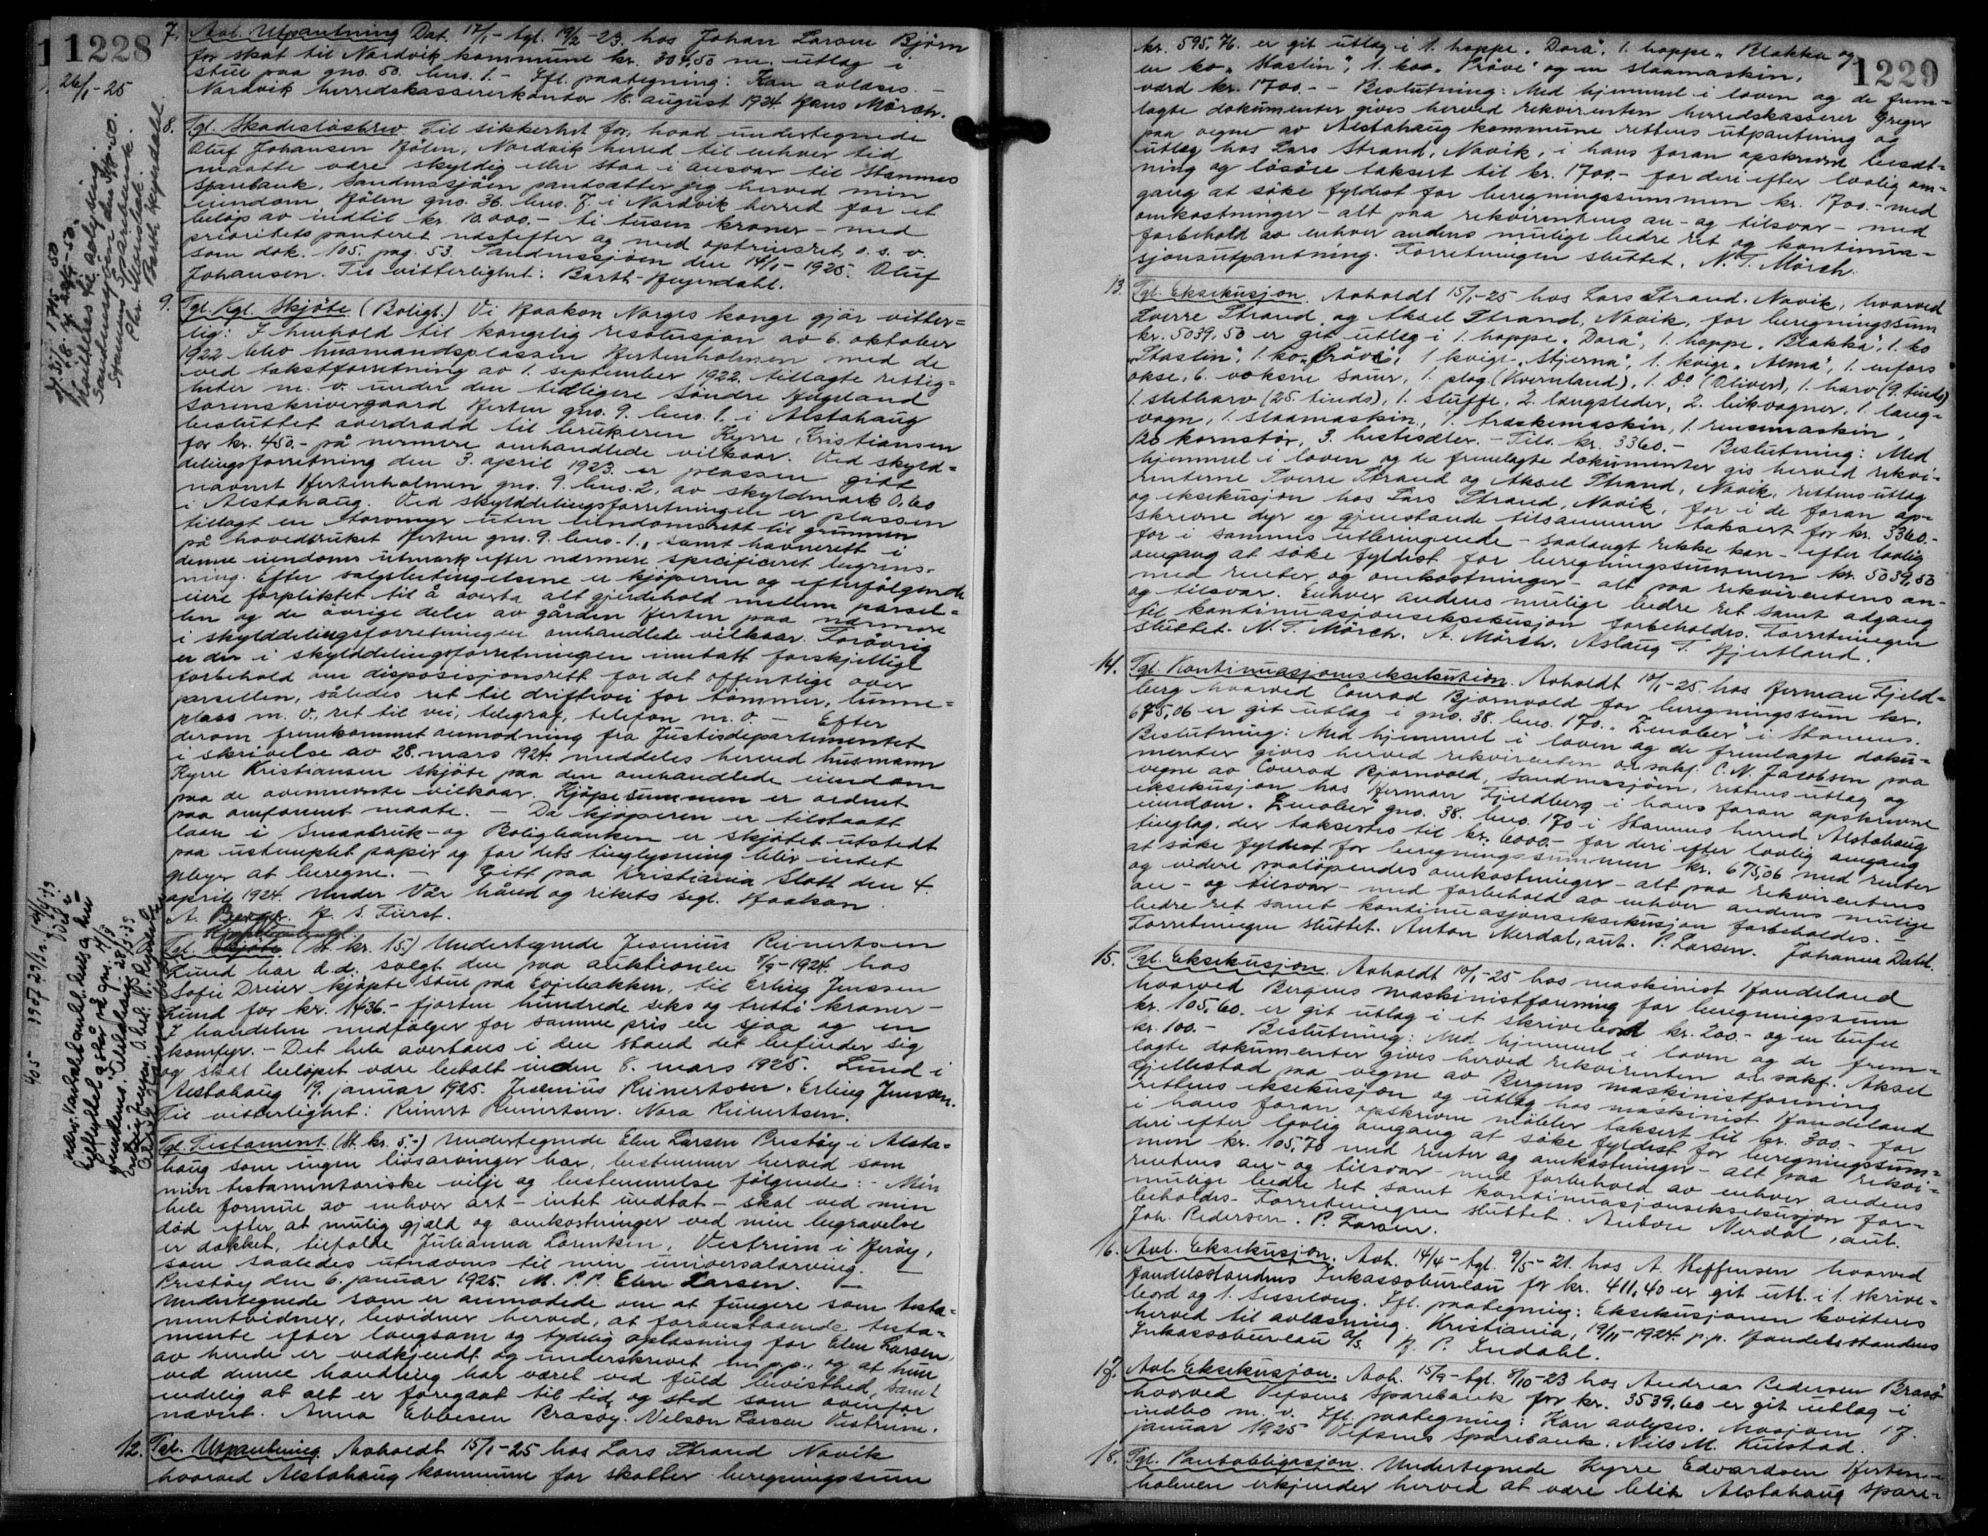 1 1228
26/1-25
7. Avl. Utpantning Dat. 17/1- tgl. 19/2-23 hos Johan Larsen Bjørn
for skat til Nordvik kommune kr. 304,50 m. utlæg i
stue paa gno. 50. bno. 1. - Ifl. paategning: Kan avløses. -
Nordvik herredskassererkontor 18. august 1924 Hans Mörch.
8. Tgl. Skadesløsbrev Til sikkerhet for, hvad undertegnede
Oluf Johansen Hölen, Nordvik herred til enhver tid
maatte være skyldig eller staa i ansvar til Stamnes
Sparebank, Sandnessjöen pantsætter jeg herved min
eiendom Hölen gno. 36. bno. 7. i Nordvik herred for et
belöp av indtil kr. 10.000.- ti tusen kroner - med
prioritets panteret næstefter og med optrinsret, o. s. v.
som dok. 105. pag. 53. Sandnessjöen den 14/1-1925. Oluf
Johansen. Til vitterlighet: Barth-Heyerdahl.
9. Tgl. Kgl. Skjöte (Boligl.) Vi Haakon Norges konge gjör vitter=
lig: I henhold til kongelig resolusjon av 6. oktober
1922 blev husmandsplassen Hertenholmen med de
ved takstforretning av 1. september 1922 tillagte rettig=
heter m. v. under den tidligere Söndre Helgeland
sorenskrivergaard Herten gno. 9. bno. 1. i Alstahaug
besluttet overdradd til brukeren Kyrre Kristiansen
for kr. 450.- på nærmere omhandlede vilkaar. Ved skyld=
delingsforretning den 3. april 1923 er plassen gitt
navnet Hertenholmen gno. 9. bno. 2, av skyldmark 0,60
i Alstahaug. Ved skylddelingsforretningen er plassen
tillagt en torvmyr uten eiendomsrett til grunnen
på hovedbruket Herten gno. 9. bno. 1., samt havnerett i
denne eiendoms utmark efter nærmere specificeret begræns=
ning. Efter salgsbetingelsene er kjöperen og efterfölgende
eiere forpliktet til å overta alt gjerdehold mellem parsel=
len og de övrige deler av gården Herten paa nærmere
i skylddelingsforretningen omhandlede vilkaar. Forövrig
er der i skylddelingsforretningen inntatt forskjellige
forbehold om disposisjonsrett for det offentlige over
parsellen, således ret til driftevei for tömmer, tunne=
plass m. v., ret til vei, telegraf, telefon m. v. - Efter
derom fremkommet anmodning fra Justisdepartementet
i skrivelse av 28. mars 1924 meddeles herved husmann
Kyrre Kristiansen skjöte paa den omhandlede eiendom
paa de ovennevnte vilkaar. Kjöpesummen er ordnet
paa omforenet maate. - Da kjöperen er tilstaatt
laan i Smaabruk- og Boligbanken er skjötet utstedt
paa ustemplet papir og for dets tinglysning blir intet
gebyr at beregne. - Gitt paa Kristiania Slott den 4.
april 1924 under Vår hånd og rikets segl. Haakon
A. Berge. H. S. Fürst.
Tgl. Skjöte (St. kr. 15) Undertegnede Jesenius Reinertsen
Lund har d.d. solgt den paa auktionen 8/9-1924 hos
Sofie Dreier kjöpte stue paa Evjebakken, til Erling Jenssen
Lund for kr. 1436.- fjorten hundrede seks og tretti kroner -
I handelen medfölger for samme pris en sjaa og en
komfyr. - Det hele overtaes i den stand det befinder sig
og skal belöpet være betalt inden 8. mars 1925. Lund i
Alstahaug 19. januar 1925. Jesenius Reinertsen. Erling Jenssen.
Til vitterlighet: Reinert Reinertsen. Nora Reinertsen.
Tgl. Testament (St. kr. 5.-) Undertegnede Elen Larsen Prestöy i Alsta=
haug som ingen livsarvinger har, bestemmer herved som
min testamentariske vilje og bestemmelse fölgende: - Min
hele formue av enhver art - intet undtat - skal ved min
död efter at mulig gjæld og omkostninger ved min begravelse
er dækket, tilfalde Julianna Lorentsen, Vestrum i Heröy,
som saaledes utnævnes til min universalarving. -
Prestöy den 6. januar 1925 M. P. P. Elen Larsen.
Undertegnede som er anmodede om at fungere som testa=
mentvidner, bevidner herved, at foranstaaende testa=
mente efter langsom og tydelig oplæsning for Elen Larsen,
av hende er vedkjendt og underskrevet m. p. p., og at hun
ved denne handling har været ved fuld bevissthed, samt
endelig at alt er foregaat til tid og sted som ovenfor
nævnt. Anna Ebbesen Prestöy. Nelson Larsen Vestrum.
12. Tgl. Utpantning Avholdt 15/1-25 hos Lars Strand Navik
hvorved Alstahaug kommune for skatter beregningssum
1229
kr. 595,76 er git utlæg i 1. hoppe "Dora", 1. hoppe "Blakka" og
en ko "Staslin", 1. ko "Pröve" og en slaamaskin,
værd kr. 1700.- - Beslutning: Med hjemmel i loven og de frem=
lagte dokumenter gives herved rekvirenten herredskasserer Greger
paa vegne av Alstahaug kommune rettens utpantning og
utlæg hos Lars Strand, Navik, i hans foran opskrevne besæt=
ning og lösöre taksert til kr. 1700.- for deri efter lovlig om=
gang at söke fyldest for beregningssummen kr. 1700.- med
omkostninger - alt paa rekvirentens an- og tilsvar - med
forbehold av enhver andens mulige bedre ret og kontinua=
sjonsutpantning. Forretningen sluttet. N. T. Mörch.
13. Tgl. Eksekusjon. Avholdt 15/1-25 hos Lars Strand, Navik, hvorved
Sverre Strand og Aksel Strand, Navik, for beregningssum
kr. 5039,50 er git utlæg i 1. hoppe "Dora", 1. hoppe "Blakka", 1. ko
"Staslin", 1. ko "Pröve", 1 kvige "Stjerna", 1. kvige "Alma", 1. enfors
okse, 6. voksne sauer, 1. plog (Kvernland), 1. Do (Oliver), 1. harv (9. tinds)
1. sletharv (25 tinds), 1. sluffe, 2. langsleder, 2. likvogner, 1. lang=
vogn, 1. slaamaskin, 1. træskemaskin, 1. rensemaskin,
120 kornstör, 3. hestesæler. - Tils. kr. 3360.- Beslutning: Med
hjemmel i loven og de fremlagte dokumenter gis herved rekvi=
renterne Sverre Strand og Aksel Strand, Navik, rettens utlæg
og eksekusjon hos Lars Strand, Navik, for i de foran op=
skrevne dyr og gjenstande tilsammen taksert for kr. 3360.-
for i sammes utbringende - saalangt rekke kan - efter lovlig
omgang at söke fyldest for beregningssummen kr. 5039,50
med renter og omkostninger - alt paa rekvirentens an-
og tilsvar. Enhver andens mulige bedre ret samt adgang
til kontinuasjonseksekusjon forbeholdes. Forretningen
sluttet. N. T. Mörch. A. Mörch. Aslaug T. Hjertland.
14. Tgl. Kontinuasjonseksekution. Avholdt 10/1-25 hos Herman Fjeld=
berg hvorved Conrad Bjornvold for beregningssum kr.
675,06 er git utlæg i gno. 38. bno. 170. "Zenober" i Stamnes.
Beslutning: Med hjemmel i loven og de fremlagte doku=
menter gives herved rekvirenten o.r.sakf. C. N. Jacobsen paa
vegne av Conrad Bjornvold, Sandnessjöen, rettens utlæg og
eksekusjon hos Herman Fjeldberg i hans foran opskrevne
eiendom "Zenober" gno. 38. bno. 170 i Stamnes herred Alstahaug
tinglag, der taksertes til kr. 6000.- for deri efter lovlig omgang
at söke fyldest for beregningssummen kr. 675,06 med renter
og videre paalöpendes omkostninger - alt paa rekvirentens
an- og tilsvar - med forbehold av enhver andens mulige
bedre ret samt kontinuasjonseksekusjon forbeholdes. -
Forretningen sluttet. Anton Nerdal, aut. P. Larsen. Johanna Dahl.
15. Tgl. Eksekusjon. Avholdt 10/1-25 hos maskinist Handeland
hvorved Bergens maskinistforening for beregningssum
kr. 105,60. er git utlæg i et skrivebord kr. 200.- og en buffé
kr. 100.- Beslutning: Med hjemmel i loven og de frem=
lagte dokumenter gives herved rekvirenten o.r.sakf. Aksel
Gjellestad paa vegne av Bergens maskinistforening
rettens eksekusjon og utlæg hos maskinist Handeland
i hans foran opskrevne möbler taksert til kr. 300.- for
deri efter lovlig omgang at söke fyldest for beregningssum=
men kr. 105,70 med renter og omkostninger - alt paa rekvi=
rentens an- og tilsvar - med forbehold av enhver andens
mulige bedre ret samt kontinuasjonseksekusjon for=
beholdes. Forretningen sluttet. Anton Nerdal, aut.
Joh. Pedersen. P. Larsen.
16. Avl. Eksekusjon. Avh. 14/4- tgl. 9/5-21. hos A. Steffensen hvorved
Handelsstandens Inkassobureau for kr. 411,40 er git utl. i 1. skrive=
bord og 1. Sisselong. Ifl. paategning: Eksekusjonen kvitteres
herved til avlæsning. Kristiania, 19/11-1924 p.p. Handelsstandens
Inkassobureau A/S. H. P. Indahl.
17. Avl. Eksekusjon. Avh. 15/9- tgl. 8/10-23 hos Andreas Pedersen Brasö
hvorved Vefsens Sparebank for kr. 3539,60 er git utlæg i
indbo m. v. Ifl. paategning: Kan avlyses. Mosjöen 17.
januar 1925 Vefsens Sparebank. Nils M. Kulstad.
18. Tgl. Pantobligasjon. Undertegnede Kyrre Edvardsen Herten=
holmen erkjender herved at være blit Alstahaug Spare=